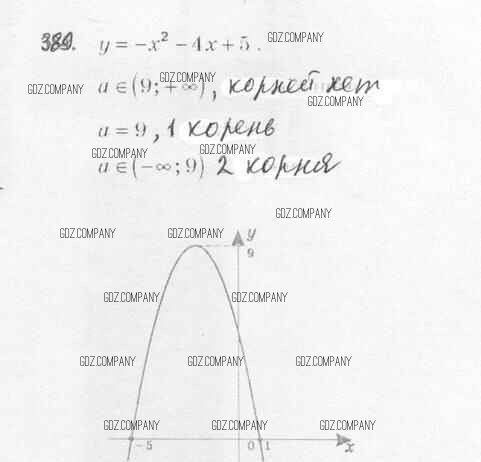 389. y = -x² - 4x + 5. GDZ.COMPANY
GDZ.COMPANY
GDZ.COMPANY a ∈ (9; +∞), корней нет
GDZ.COMPANY
a = 9, 1 корень
GDZ.COMPANY GDZ.COMPANY
a ∈ (-∞; 9) 2 корня
GDZ.COMPANY
GDZ.COMPANY GDZ.COMPANY y
9
GDZ.COMPANY GDZ.COMPANY
GDZ.COMPANY GDZ.COMPANY GDZ.COMPANY
GDZ.COMPANY GDZ.COMPANY GDZ.COMPANY
-5 0 1 x